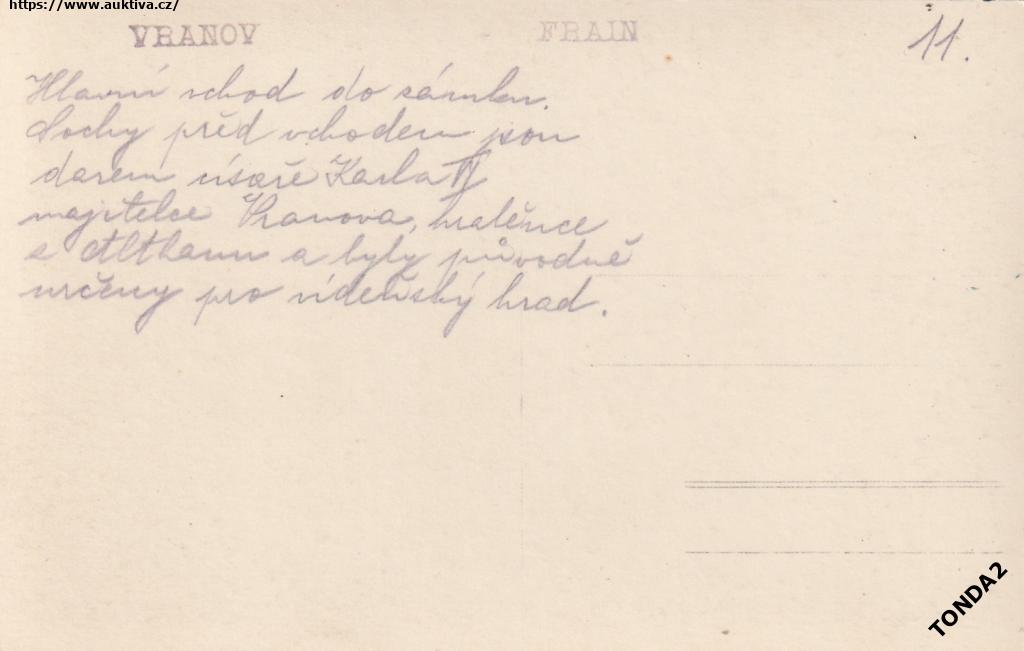 https://www.auktiva.cz/
VRANOV FRAIN 11.
Hlavní vchod do zámku.
Sochy před vchodem jsou
darem císaře Karla VI
majitelce Vranova, hraběnce
z Althanu a byly původně
určeny pro vídeňský hrad.
TONDA2